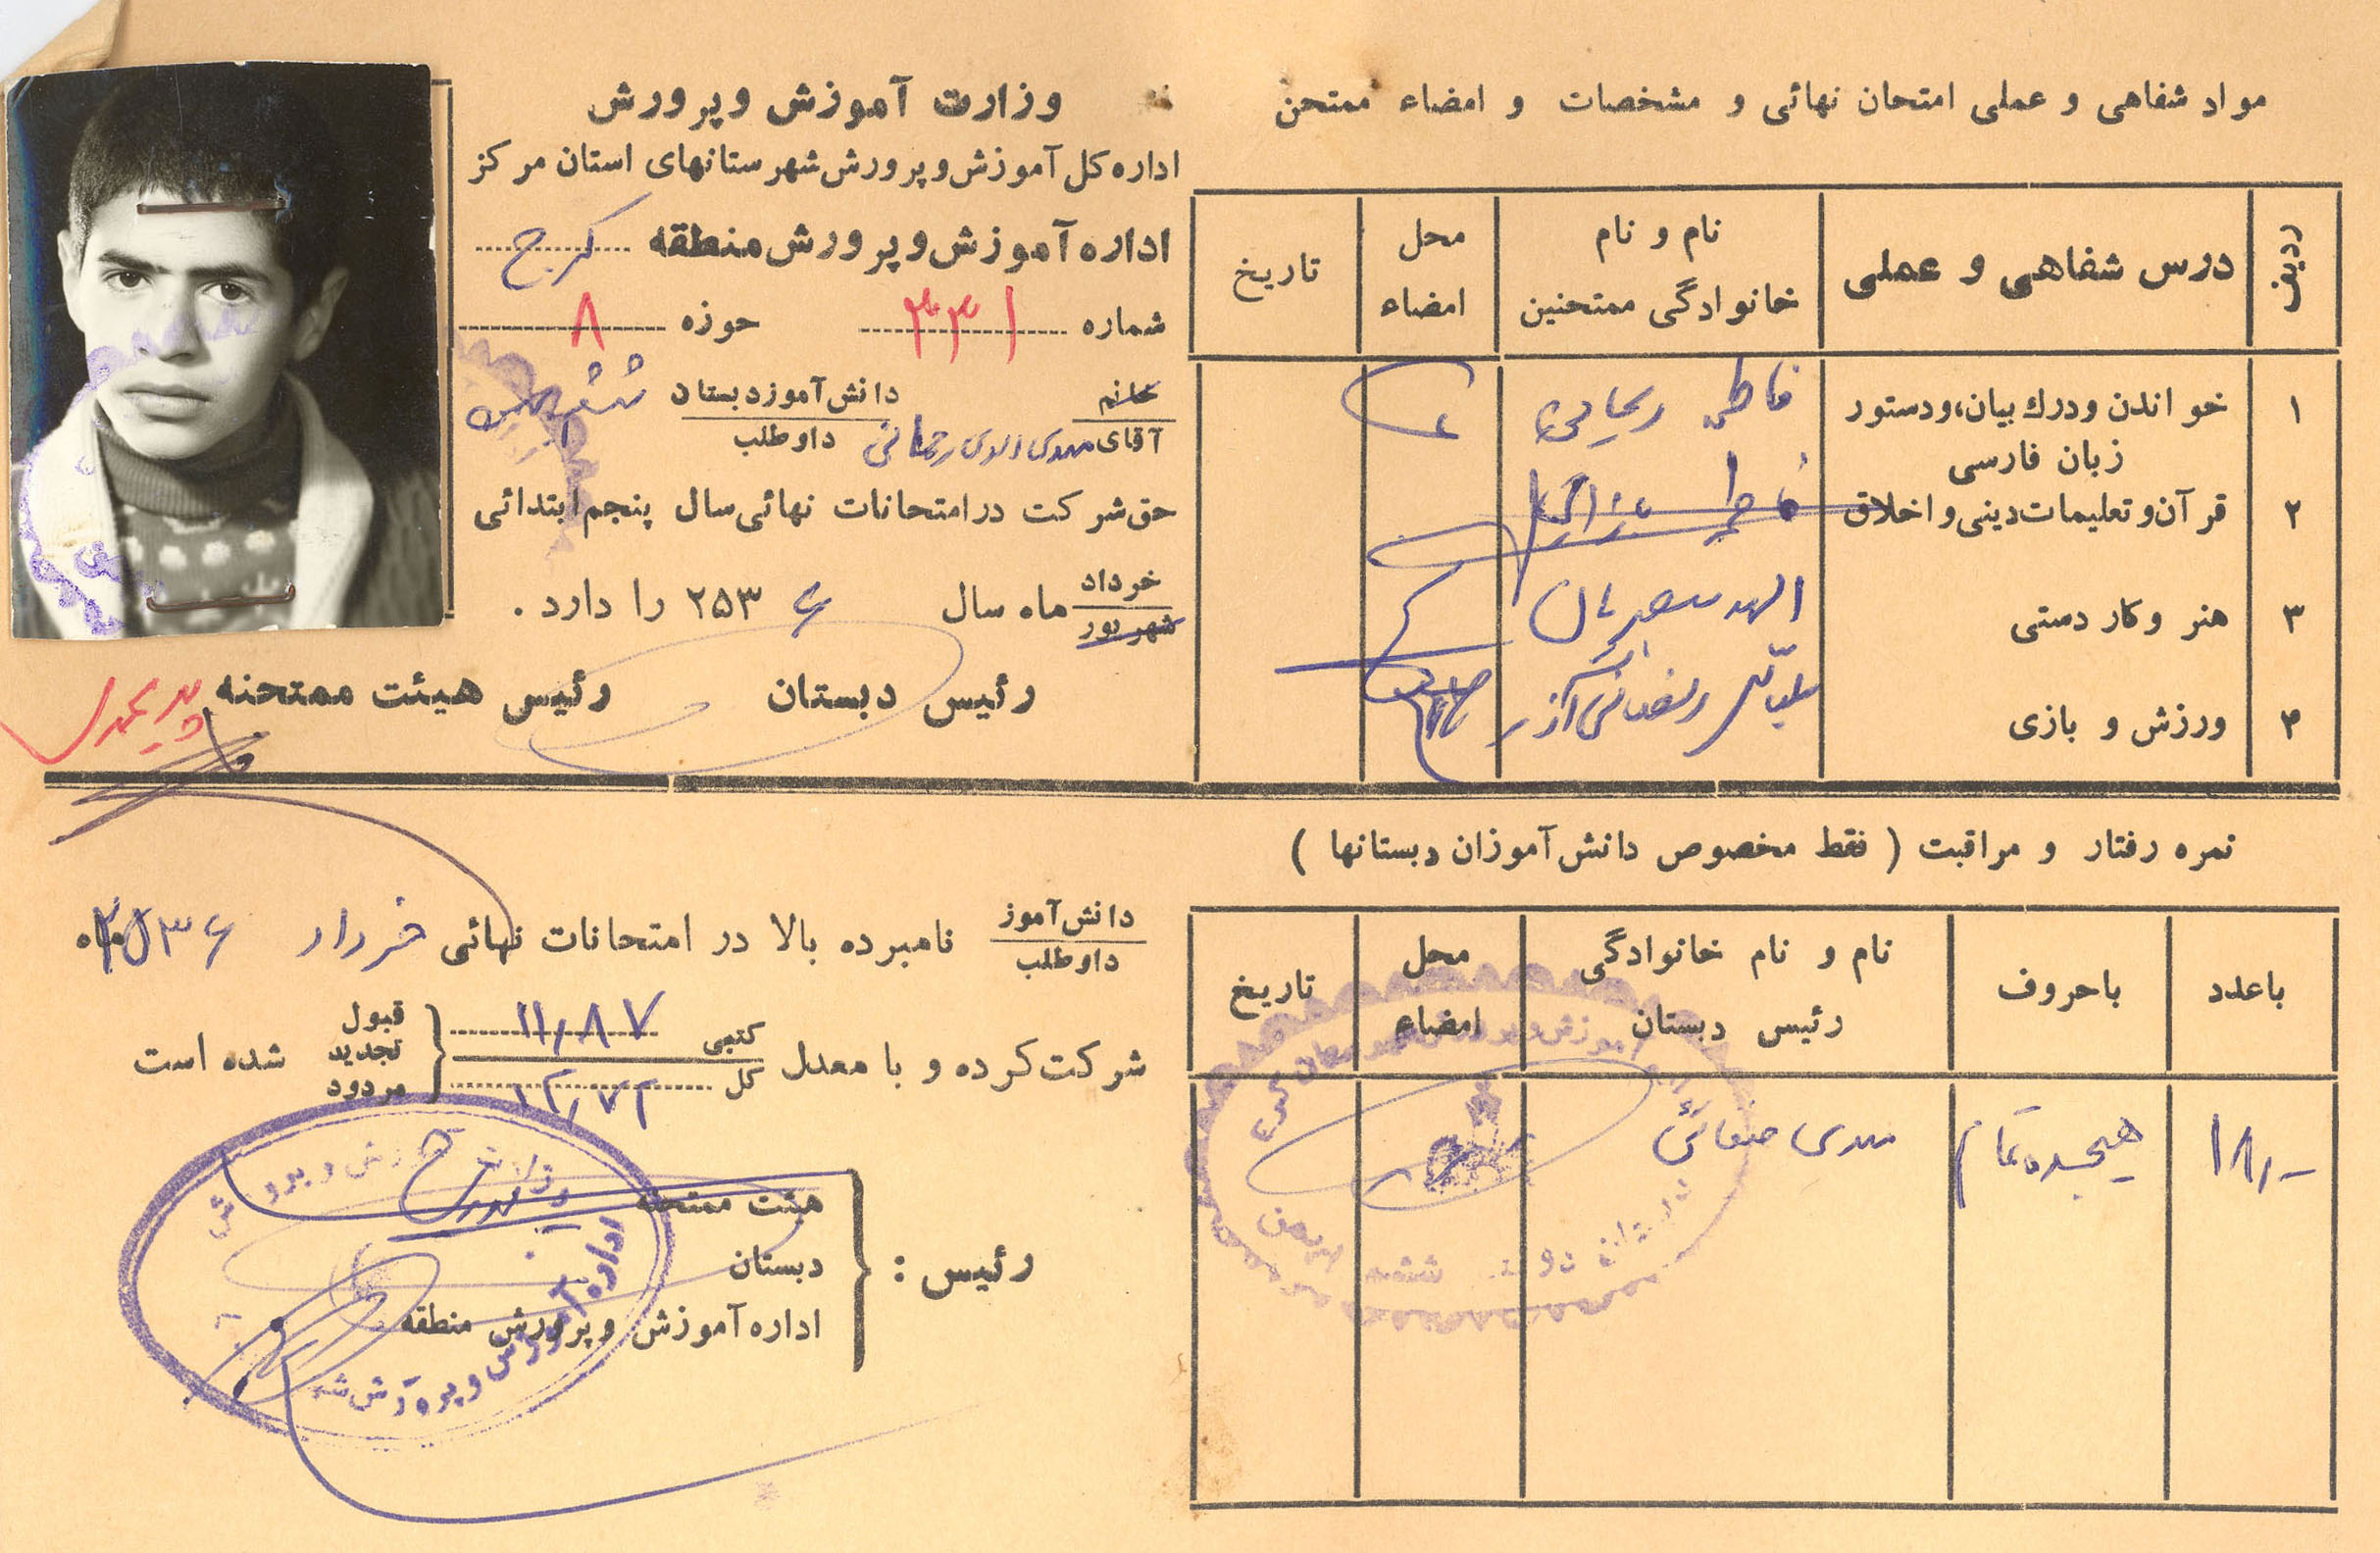 وزارت آموزش و پرورش
اداره کل آموزش و پرورش شهرستانهای استان مرکز
اداره آموزش و پرورش منطقه کرج
شماره ۳۳۱ حوزه ۸
خانم
آقای مهدی رحمانی
دانش‌آموز دبستان
داوطلب
ششم بهمن
حق شرکت در امتحانات نهائی سال پنجم ابتدائی
خرداد
شهریور
ماه سال ۲۵۳۶ را دارد .
رئیس دبستان رئیس هیئت ممتحنه
مواد شفاهی و عملی امتحان نهائی و مشخصات و امضاء ممتحن
ردیف
درس شفاهی و عملی
نام و نام
خانوادگی ممتحنین
محل
امضاء
تاریخ
۱ خواندن و درك بیان، و دستور
زبان فارسی
فاطمه
۲ قرآن و تعلیمات دینی و اخلاق
۳ هنر و کار دستی
الهه
۴ ورزش و بازی
رمضانی آذر
دانش‌آموز
داوطلب
نامبرده بالا در امتحانات نهائی خرداد ماه ۲۵۳۶
شرکت کرده و با معدل
کتبی ۱۱/۸۷
کل ۱۳/۷۲
قبول
تجدید
مردود
شده است
رئیس :
هیئت ممتحنه
دبستان
اداره آموزش و پرورش منطقه
نمره رفتار و مراقبت ( فقط مخصوص دانش‌آموزان دبستانها )
باعدد
باحروف
نام و نام خانوادگی
رئیس دبستان
محل
امضاء
تاریخ
۱۸/-
هیجده تمام
مهدی صفائی